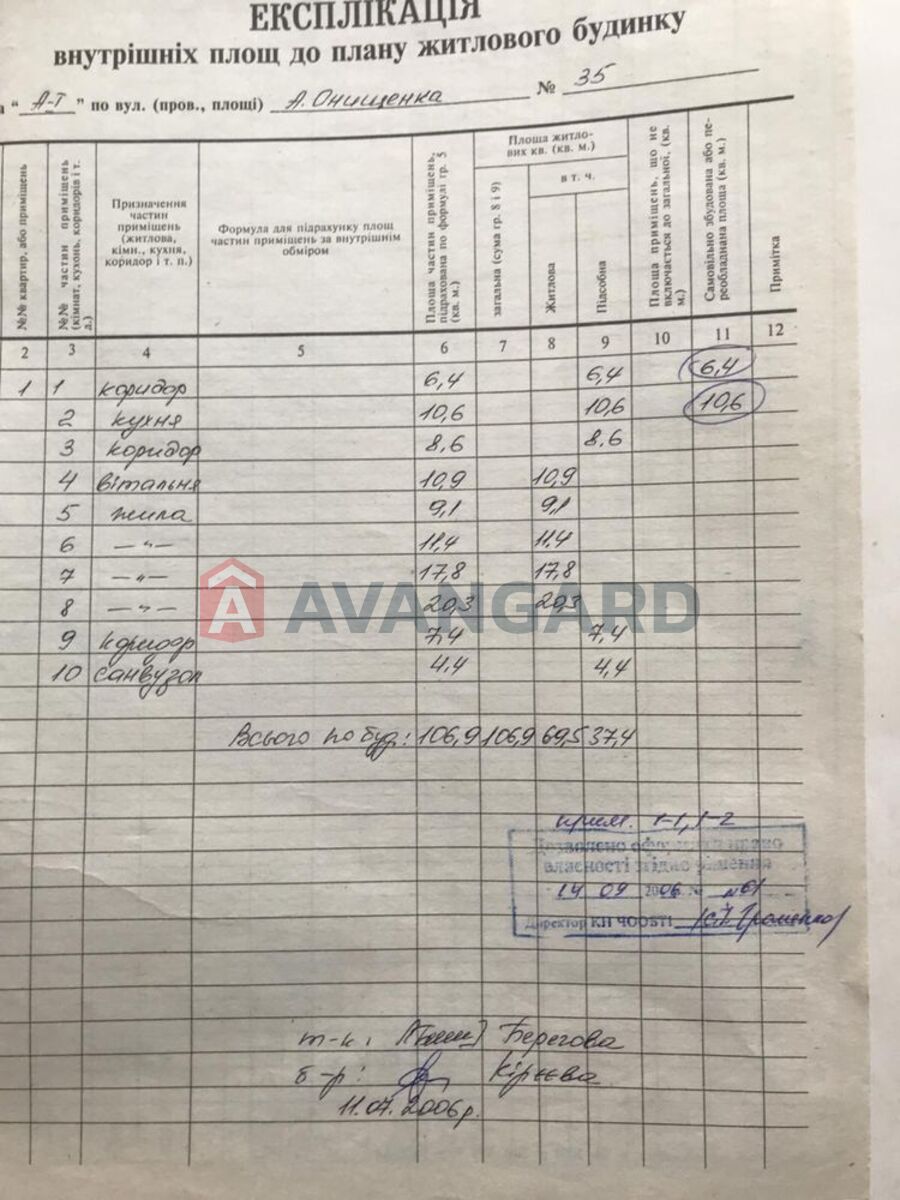 ЕКСПЛІКАЦІЯ
внутрішніх площ до плану житлового будинку
а “ А-Т ” по вул. (пров., площі) А. Онищенка № 35
№№ квартир, або приміщень
№№ частин приміщень (кімнат, кухонь, коридорів і т. д.)
Призначення частин приміщень (житлова, кімн., кухня, коридор і т. п.)
Формула для підрахунку площ частин приміщень за внутрішнім обміром
Площа частин приміщень, підрахована по формулі гр. 5 (кв. м.)
Площа житлових кв. (кв. м.)
загальна (сума гр. 8 і 9)
в т. ч.
Житлова
Підсобна
Площа приміщень, що не включається до загальної, (кв. м.)
Самовільно збудована або переобладнана площа (кв. м.)
Примітка
2 3 4 5 6 7 8 9 10 11 12
1 1 коридор 6,4 6,4 6,4
2 кухня 10,6 10,6 10,6
3 коридор 8,6 8,6
4 вітальня 10,9 10,9
5 жила 9,1 9,1
6 —〃— 11,4 11,4
7 —〃— 17,8 17,8
8 —〃— 20,3 20,3
9 коридор 7,4 7,4
10 санвузол 4,4 4,4
AVANGARD
Всього по буд: 106,9 106,9 69,5 37,4
прим. 1-1, 1-2
Дозволено оформити право
власності згідно рішення
14 09 2006 № 61
Директор КП ЧООБТІ
т-к: Берегова
б-р: Кірєєва
11.07.2006р.